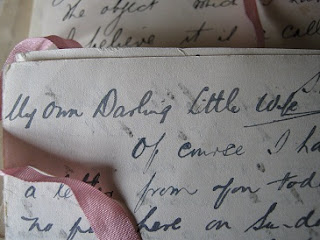 The object which I
believe it is call
My own Darling little Wife
Of course I ha
a letter from you toda
no p here on Sunda